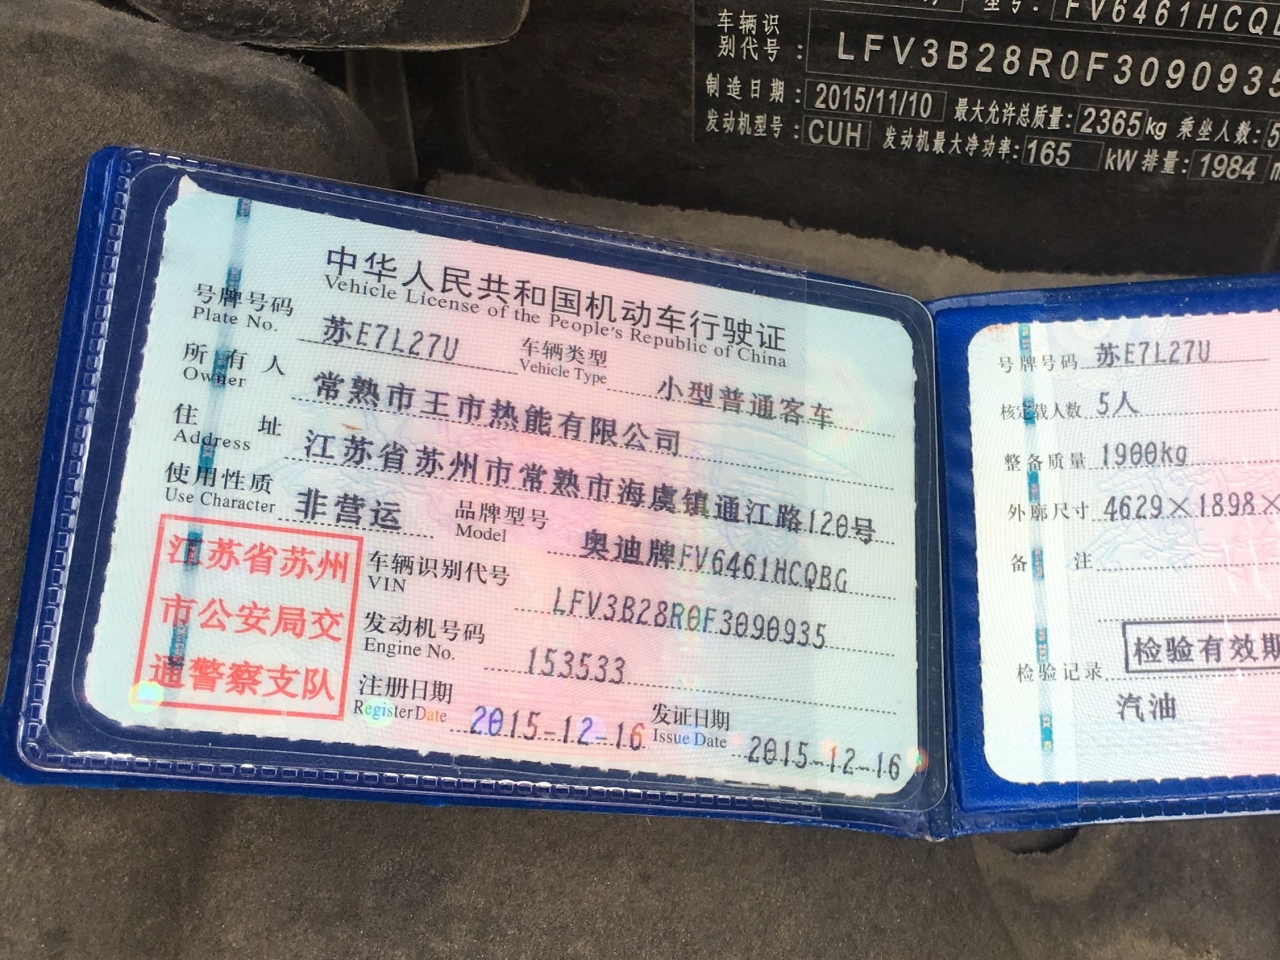 型号: FV6461HCQ
车辆识别代号: LFV3B28R0F3090935
制造日期: 2015/11/10 最大允许总质量: 2365kg 乘坐人数: 5
发动机型号: CUH 发动机最大净功率: 165 kW 排量: 1984
中华人民共和国机动车行驶证
Vehicle License of the People's Republic of China
号牌号码 苏E7L27U 车辆类型 小型普通客车
Plate No. Vehicle Type
所有人 常熟市王市热能有限公司
Owner
住址 江苏省苏州市常熟市海虞镇通江路120号
Address
使用性质 非营运 品牌型号 奥迪牌FV6461HCQBG
Use Character Model
江苏省苏州
市公安局交
通警察支队
车辆识别代号 LFV3B28R0F3090935
VIN
发动机号码 153533
Engine No.
注册日期 2015-12-16 发证日期 2015-12-16
Register Date Issue Date
号牌号码 苏E7L27U
核定载人数 5人
整备质量 1900kg
外廓尺寸 4629×1898×
备注
检验有效期
检验记录
汽油